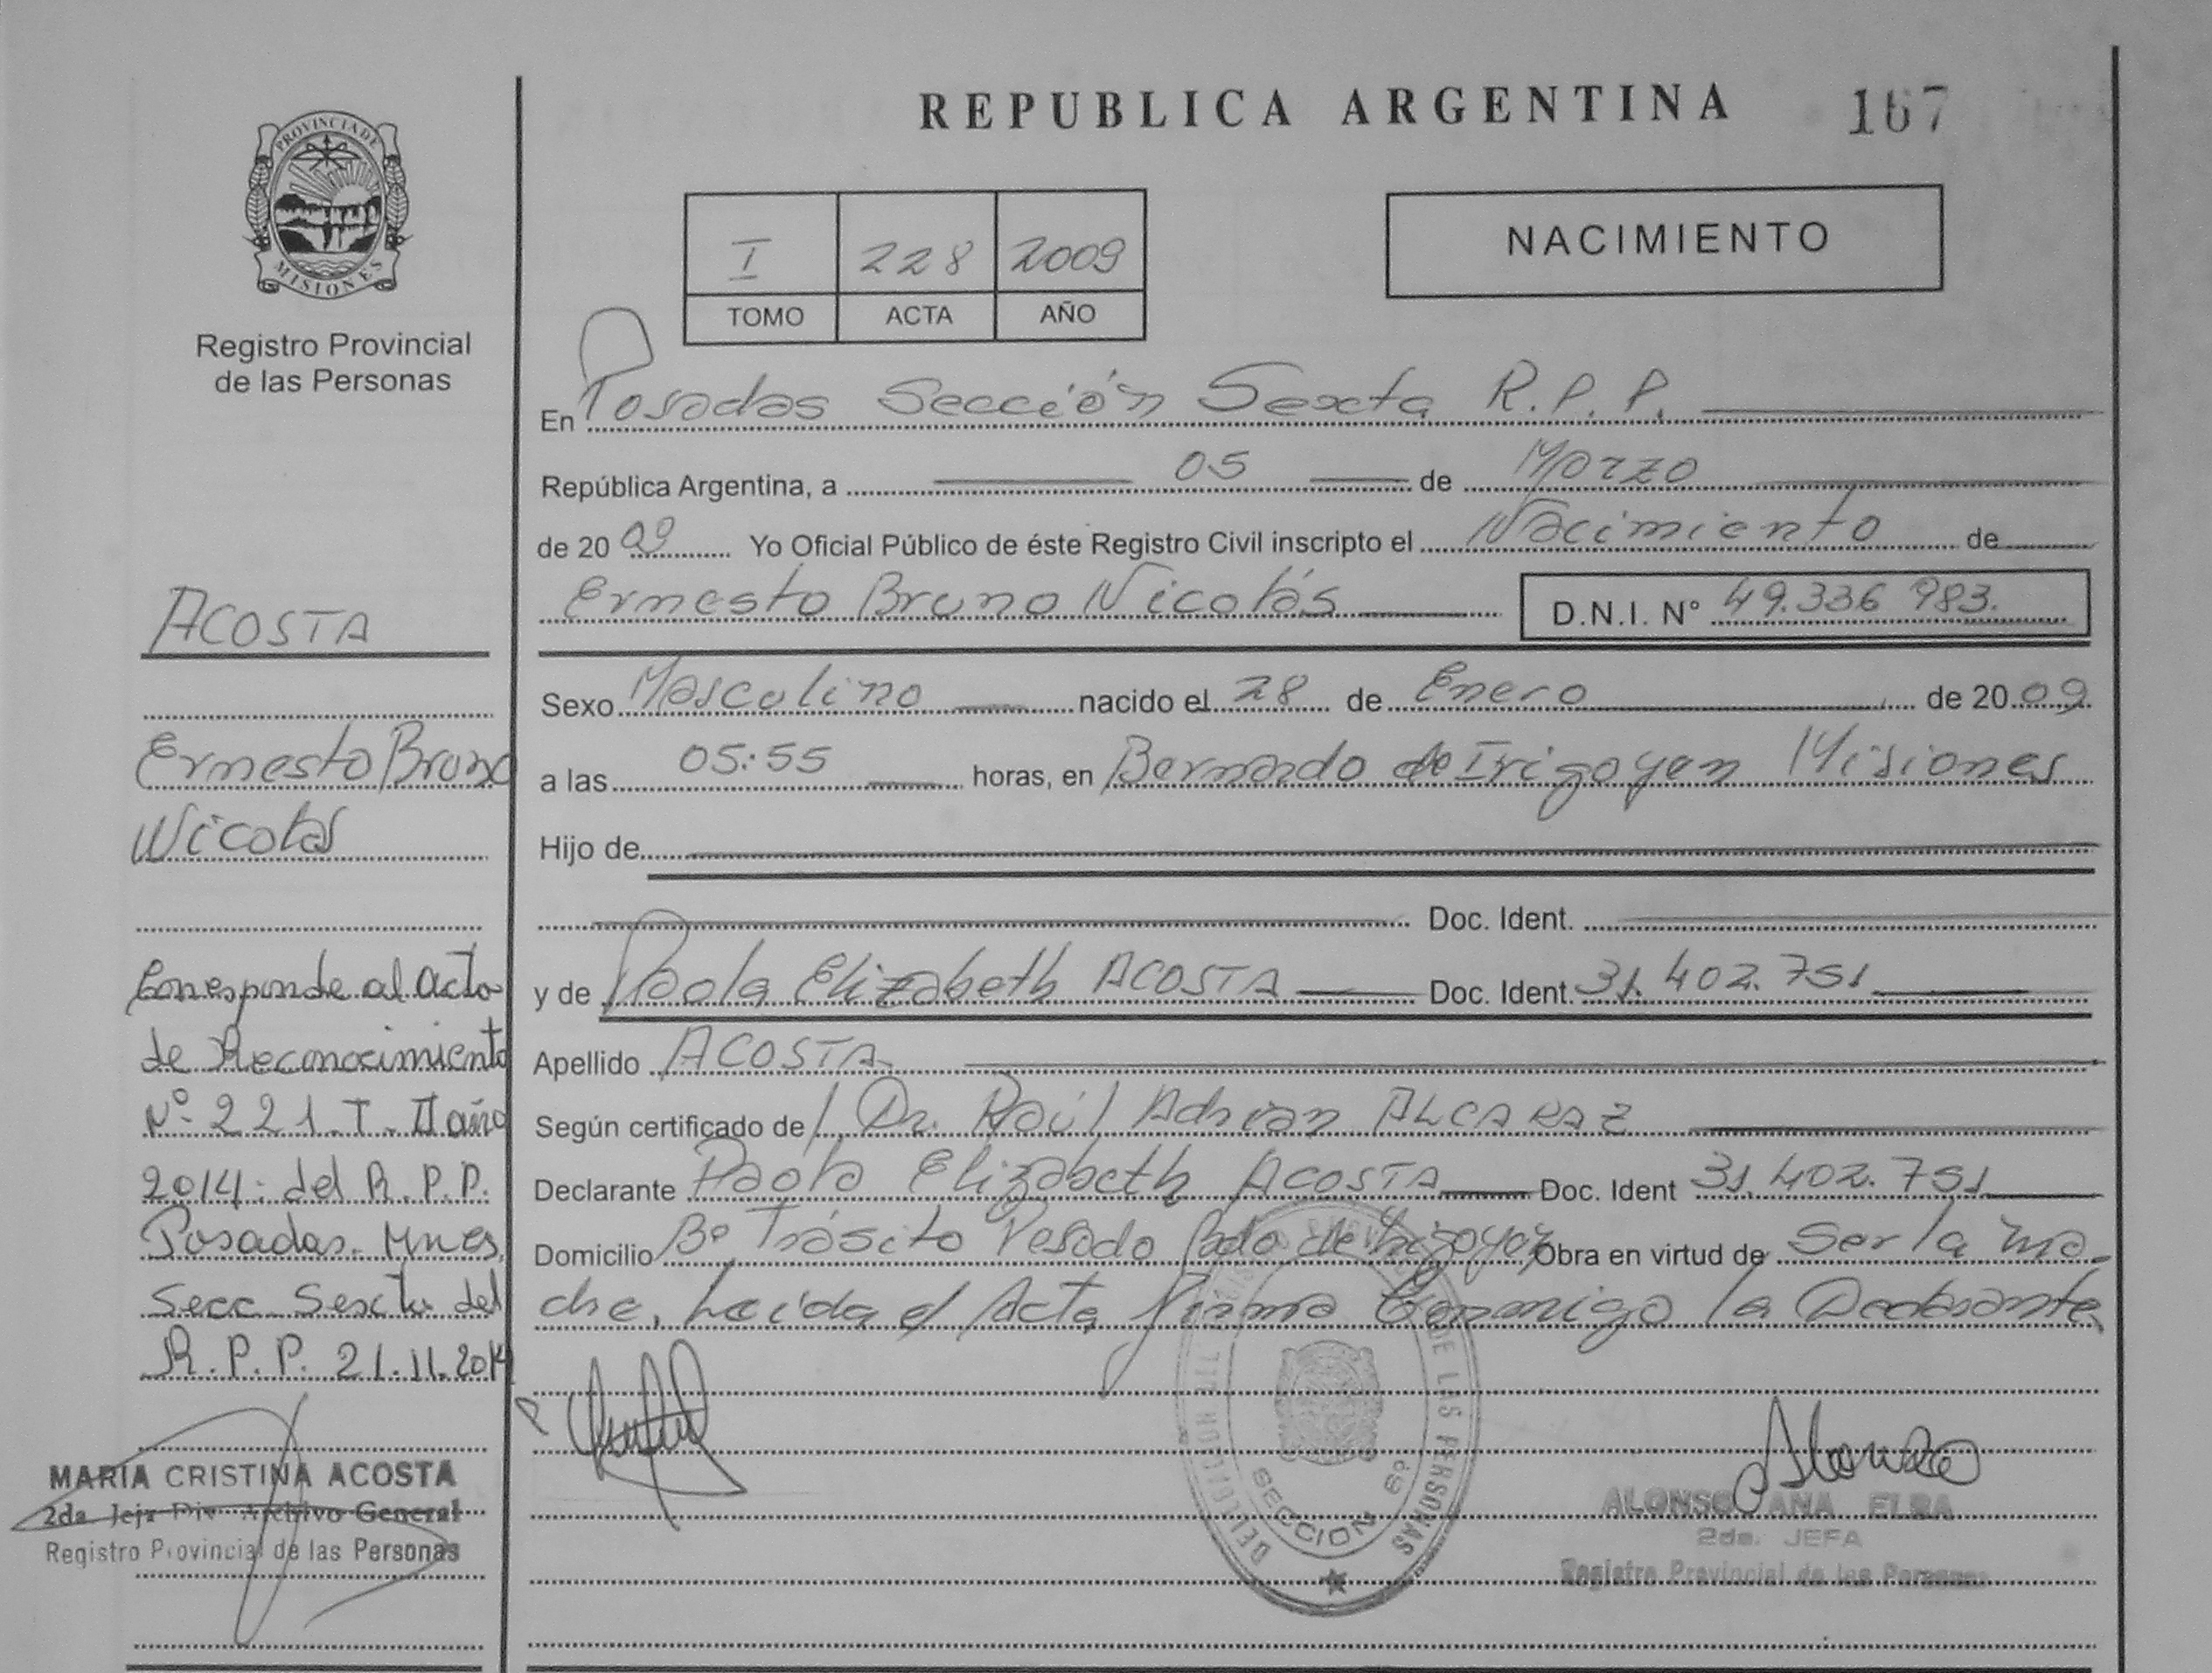 REPUBLICA ARGENTINA 167
PROVINCIA DE
MISIONES
Registro Provincial
de las Personas
I 228 2009
TOMO ACTA AÑO
NACIMIENTO
En Posadas Sección Sexta R.P.P.
República Argentina, a 05 de Marzo
de 2009 Yo Oficial Público de éste Registro Civil inscripto el Nacimiento de
Ernesto Bruno Nicolás D.N.I. N° 49.336 983.
Sexo Masculino nacido el 28 de Enero de 2009
a las 05:55 horas, en Bernardo de Irigoyen Misiones
Hijo de
Doc. Ident.
y de Paola Elizabeth ACOSTA Doc. Ident. 31.402.751
Apellido ACOSTA
Según certificado de Dr. Raúl Adrian ALCARAZ
Declarante Paola Elizabeth ACOSTA Doc. Ident 31.402.751
Domicilio Bº Trásito Pesado Bdo de Irigoyen Obra en virtud de Ser la ma-
dre, Leida el Acta Firma Conmigo la Declarante
ACOSTA
Ernesto Bruno
Nicolas
Corresponde al acto
de Reconocimiento
Nº 221 T. II año
2014. del R.P.P.
Posadas. Mnes,
Secc. Sexta del
R.P.P. 21.11.2014
MARIA CRISTINA ACOSTA
2da Jefa Div Archivo General
Registro Provincial de las Personas
DE LAS PERSONAS
SECCION 6º
ALONSO ANA ELBA
2da. JEFA
Registro Provincial de las Personas